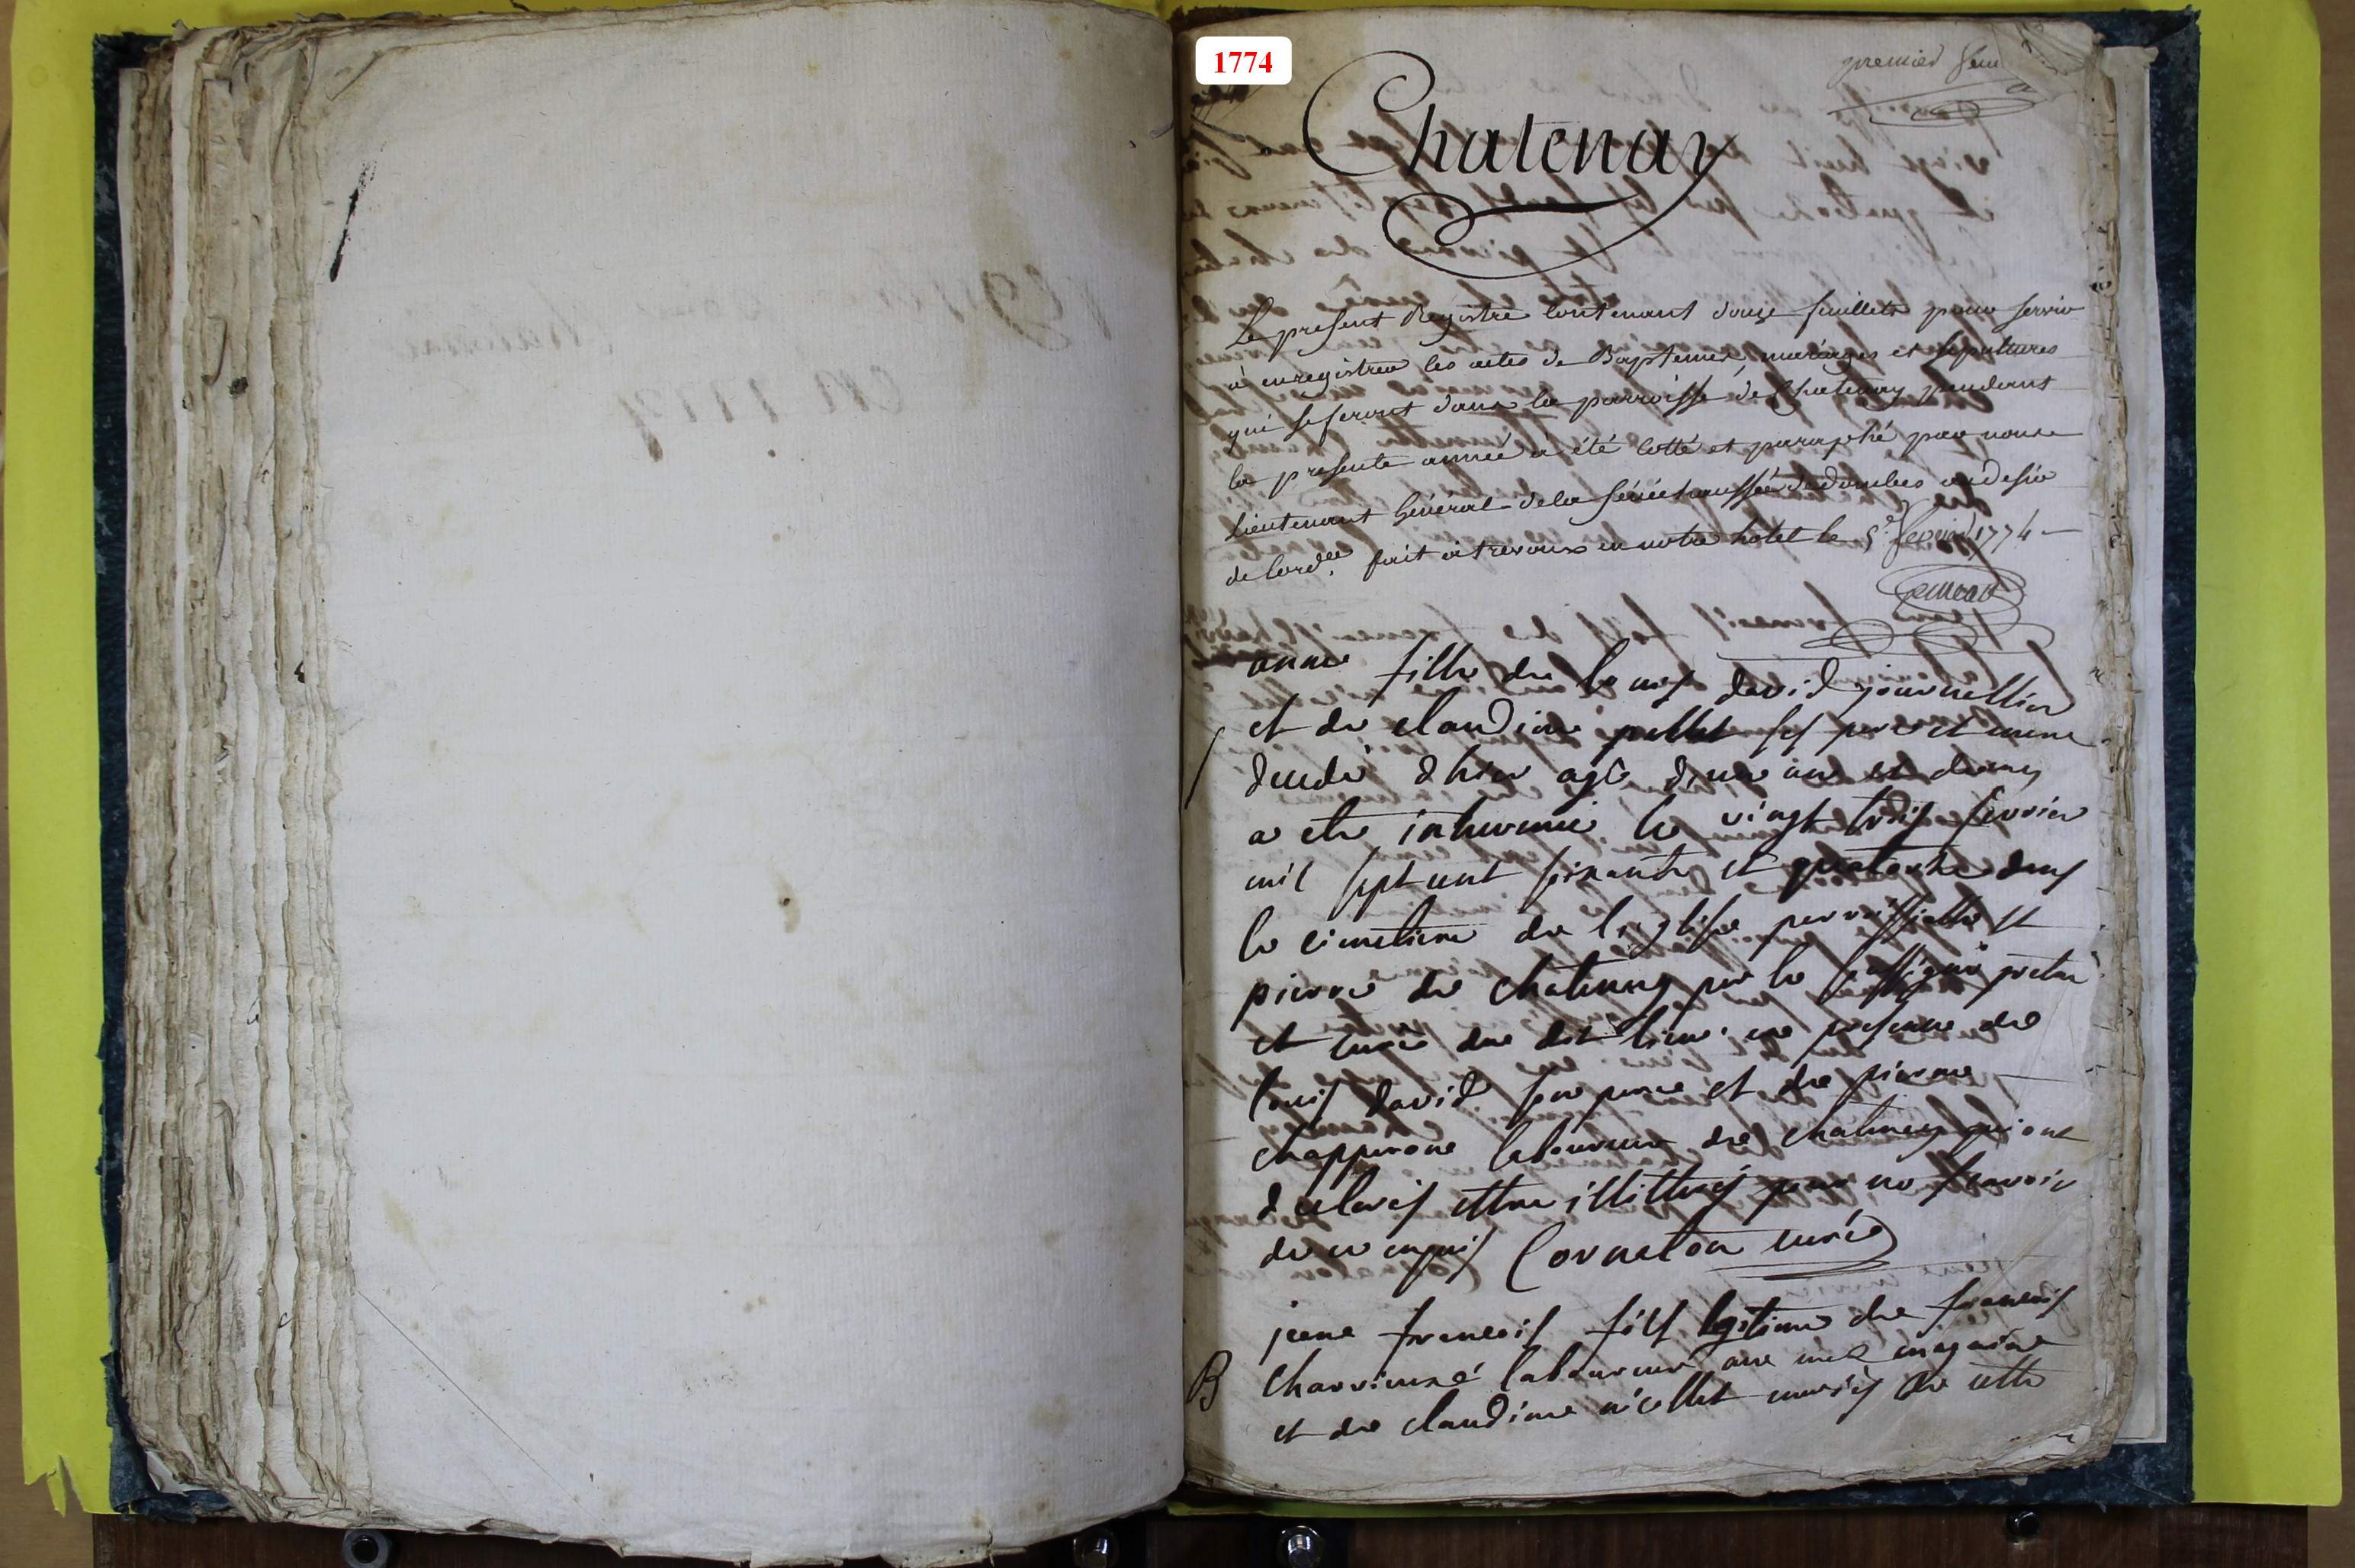 1774
premier feui
Chatenay
Le present Registre contenant douze feuillets pour servir
à enregistrer les actes de Baptemes, mariages et sepultures
qui se feront dans la parroisse de Chatenay pendant
la presente année a été cotté et paraphé par nous
Lieutenant Général de la sénéchaussée de dombes au desir
de lord.ce fait à trevoux en notre hotel le 5e fevrier 1774
anne fille de louis david journallier
et de claudine pallet ses pere et mere
decedé d hier agé d'un an et demy
a ete inhumé le vingt trois fevrier
mil sept cent soixante et quatorze dans
le cimetiere de l'eglise parroissialle st
pierre de chatenay par le soussigné pretre
et curé du dit lieu en presence de
louis david son pere et de pierre
chapperon laboureur de chatenay qui ont
declares ettre illittres pour ne scavoir
de ce enquis Cornaton curé
jean francois fils legitime de francois
B charvieux laboureur au mas
et de claudine nicollet mariés de cette